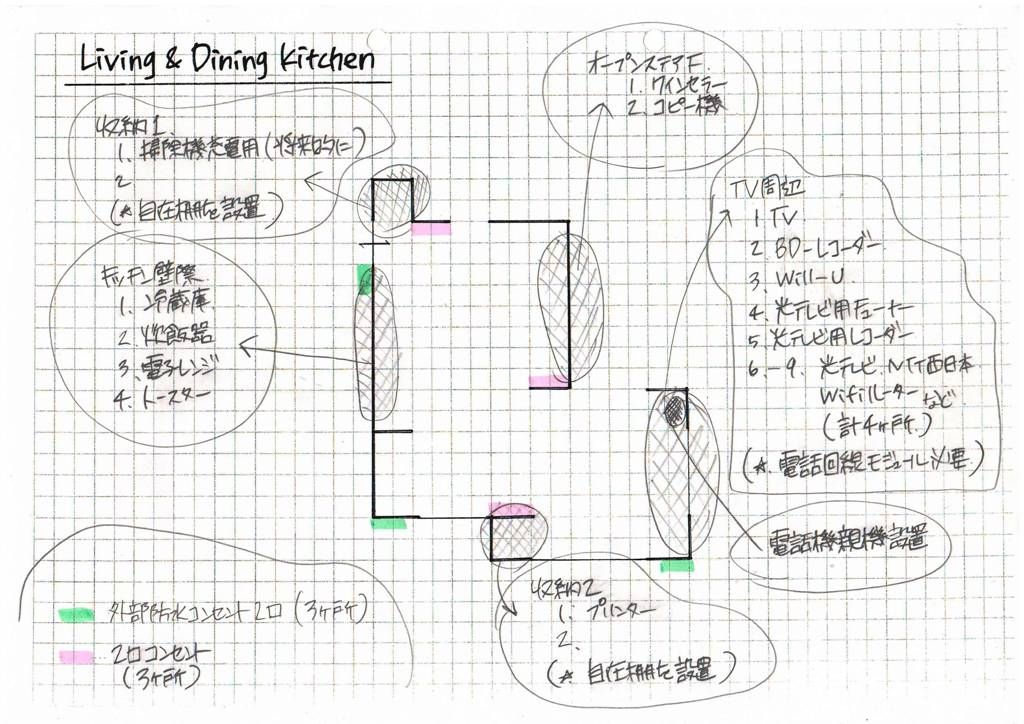 Living & Dining Kitchen
オープンステアF.
1. ワインセラー
2. コピー機
収納1.
1. 掃除機充電用 (将来的に)
2
(* 自在棚を設置)
TV周辺
1 TV
2. BDーレコーダー.
3. Will-U
4. 光テレビ用チューナー
5. 光テレビ用レコーダー
6.-9. 光テレビ. NTT西日本
Wifiルーター など
(計4ヶ所.)
(*. 電話回線モジュール必要.)
キッチン壁際.
1. 冷蔵庫.
2. 炊飯器
3. 電子レンジ
4. トースター
電話機親機設置
収納2
1. プリンター
2.
(* 自在棚を設置)
外部防水コンセント2口 (3ヶ所)
2口コンセント
(3ヶ所)